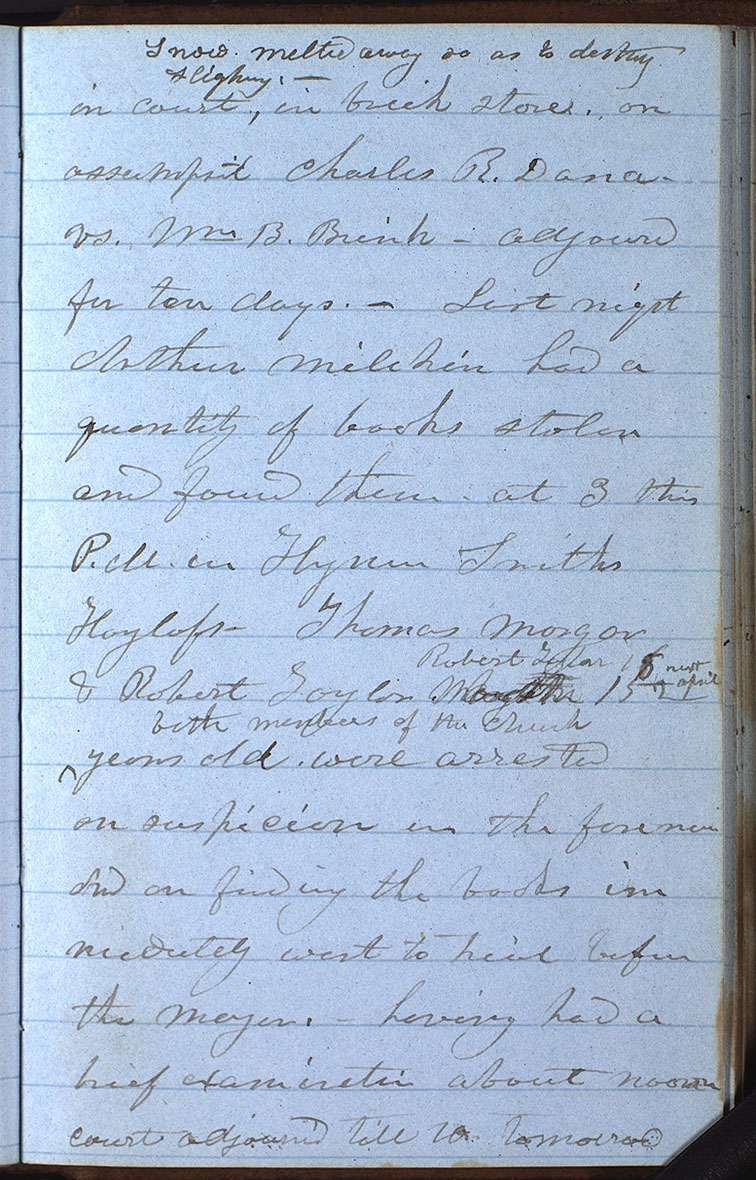 Snow. melted away so as to destroy
sleighing. —
in court, in brick store. on
assumpsit Charles R. Dana
vs. Wm B. Brink - adjourd
for ten days. — Last night
Arthur Milikin had a
quantity of books stolen
and found them at 3 this
P.M. in Hyrum Smiths
Hayloft — Thomas Morgan
Robert Taylor 15 next april
& Robert Taylor 15
both members of the Church
years old. were arrested
on suspicion in the forenoon
and on finding the books im
mediately went to trial before
the mayor. - having had a
brief examination about noon
court adjournd till 10. tomorrow